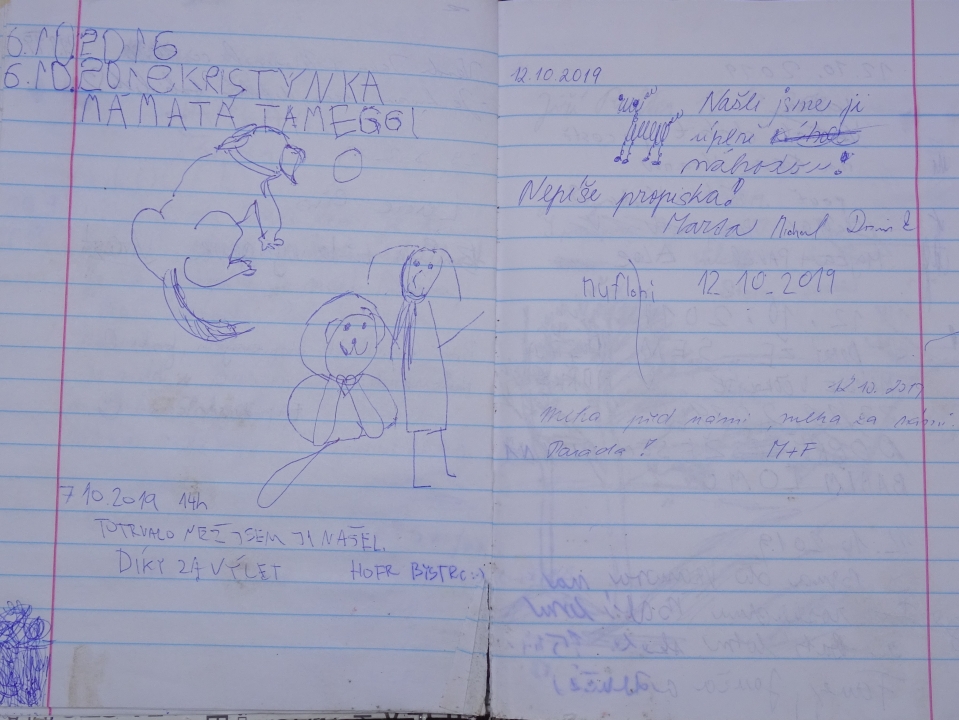 6.10.2016
6.10.2019 KRISTÝNKA
MÁMA TÁTA MEGGI
7 10.2019 14h
TO TRVALO NEŽ JSEM JI NAŠEL.
DÍKY ZA VÝLET HOFR BYSTRC :-)
12.10.2019
Našli jsme ji
úplně
náhodou!
Nepíše propiska!
Michal
Mufloni 12 10_2019
12 10. 2019
Mlha před námi, mlha za námi.
Paráda! M+F